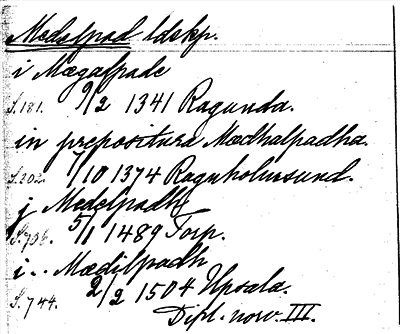 Medelpad ldskp.
i Mægalpade
S. 181. 9/2 1341 Ragunda.
in prepositura Mædhalpadha.
S. 202. 7/10 1374 Ragnholmsund.
j Medelpadh
S. 706. 5/1 1489 Torp.
i.. Mædilpadh
S. 744. 2/2 1504 Upsala.
Dipl. norv. III.